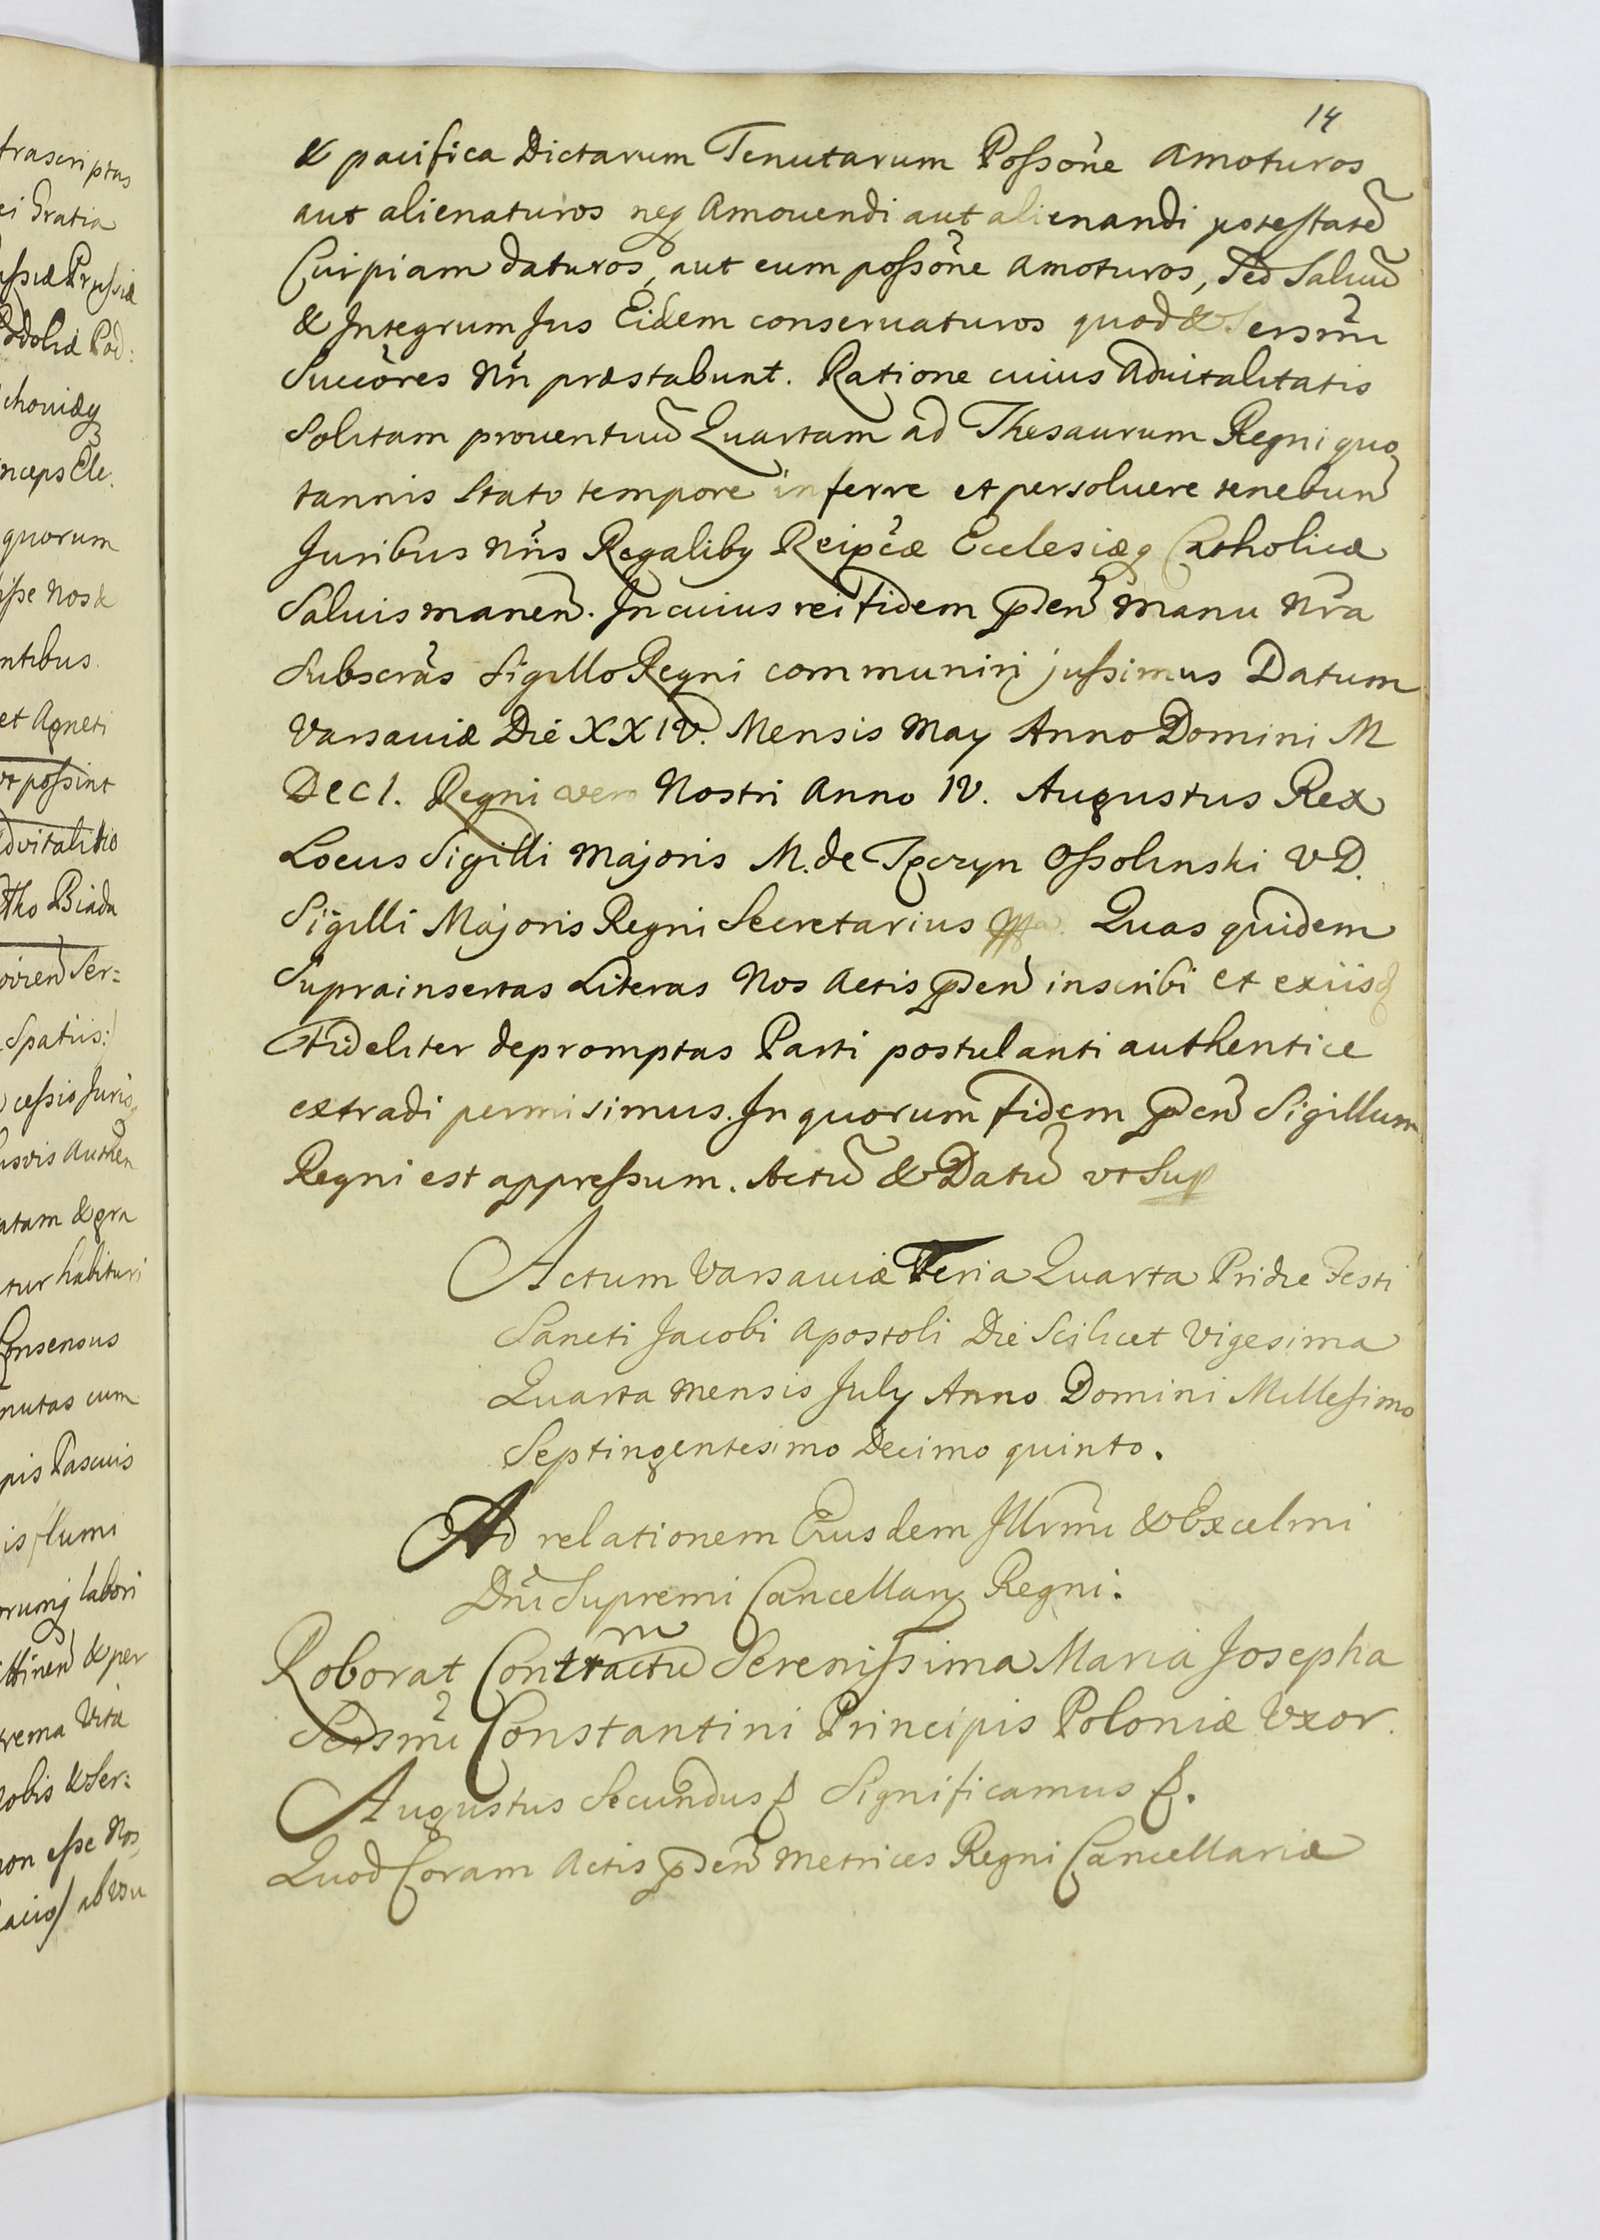 14
& pacifica Dictarum Tenutarum Possõne Amoturos
aut alienaturos neq Amouendi aut alienandi potestatẽ
Cuipiam daturos, aut eum possõne Amoturos, Sed Saluũ
& Integrum Jus Eidem conseruaturos quod & Sersmi
Succõres Nri præstabunt. Ratione cuius Aduitalitatis
Solitam prouentuũ Quartam ad Thesaurum Regni quo
tannis Stato tempore inferre et persoluere tenebun
Juribus Nris Regaliby Reipcæ Ecclesiæq Catholicæ
Saluis manen. In cuius rei fidem pden manu Nra
Subscras Sigillo Regni communiri jussimus Datum
Varsauiæ Die XXIV. Mensis May Anno Domini M
DCC1. Regni vero Nostri Anno IV. Augustus Rex
Locus Sigilli Majoris M. de Tęczyn Ossolinski V D.
Sigilli Majoris Regni Secretarius Quas quidem
Suprainsertas Literas Nos Actis pden inscribi et exiisq
Fideliter depromptas Parti postulanti authentice
extradi permisimus. In quorum fidem pden Sigillum
Regni est appressum. Actũ & Datũ vt Sup
Actum Varsauiæ Feria Quarta Pridie Festi
Sancti Jacobi Apostoli Die Scilicet Vigesima
Quarta mensis July Anno Domini Millesimo
Septingentesimo Decimo quinto.
Ad relationem Eiusdem Illrmi & Excelmi
Dni Supremi Cancellary Regni.
Roborat Contractũ Serenissima Maria Josepha
Sersmi Constantini Principis Poloniæ Vxor.
Augustus Secundus Significamus
Quod Coram Actis pden Metrices Regni Cancellariæ
trascriptas
ei Gratia
ussiæ Prussiæ
Podoliæ Pod:
chouiæq
inceps Ele.
quorum
isse nos &
ntibus
et Agneti
vt possint
dvitalitio
Biada
Ser=
Spatiis:
cessio Juris
usvis Authen
atam & gra
tur habituri
Consensus
nutas cum
pis Pascuis
is flumi
orumq labori
ttinen & per
rema Vitæ
obis & Ser:
non esse Nos
ab vsu